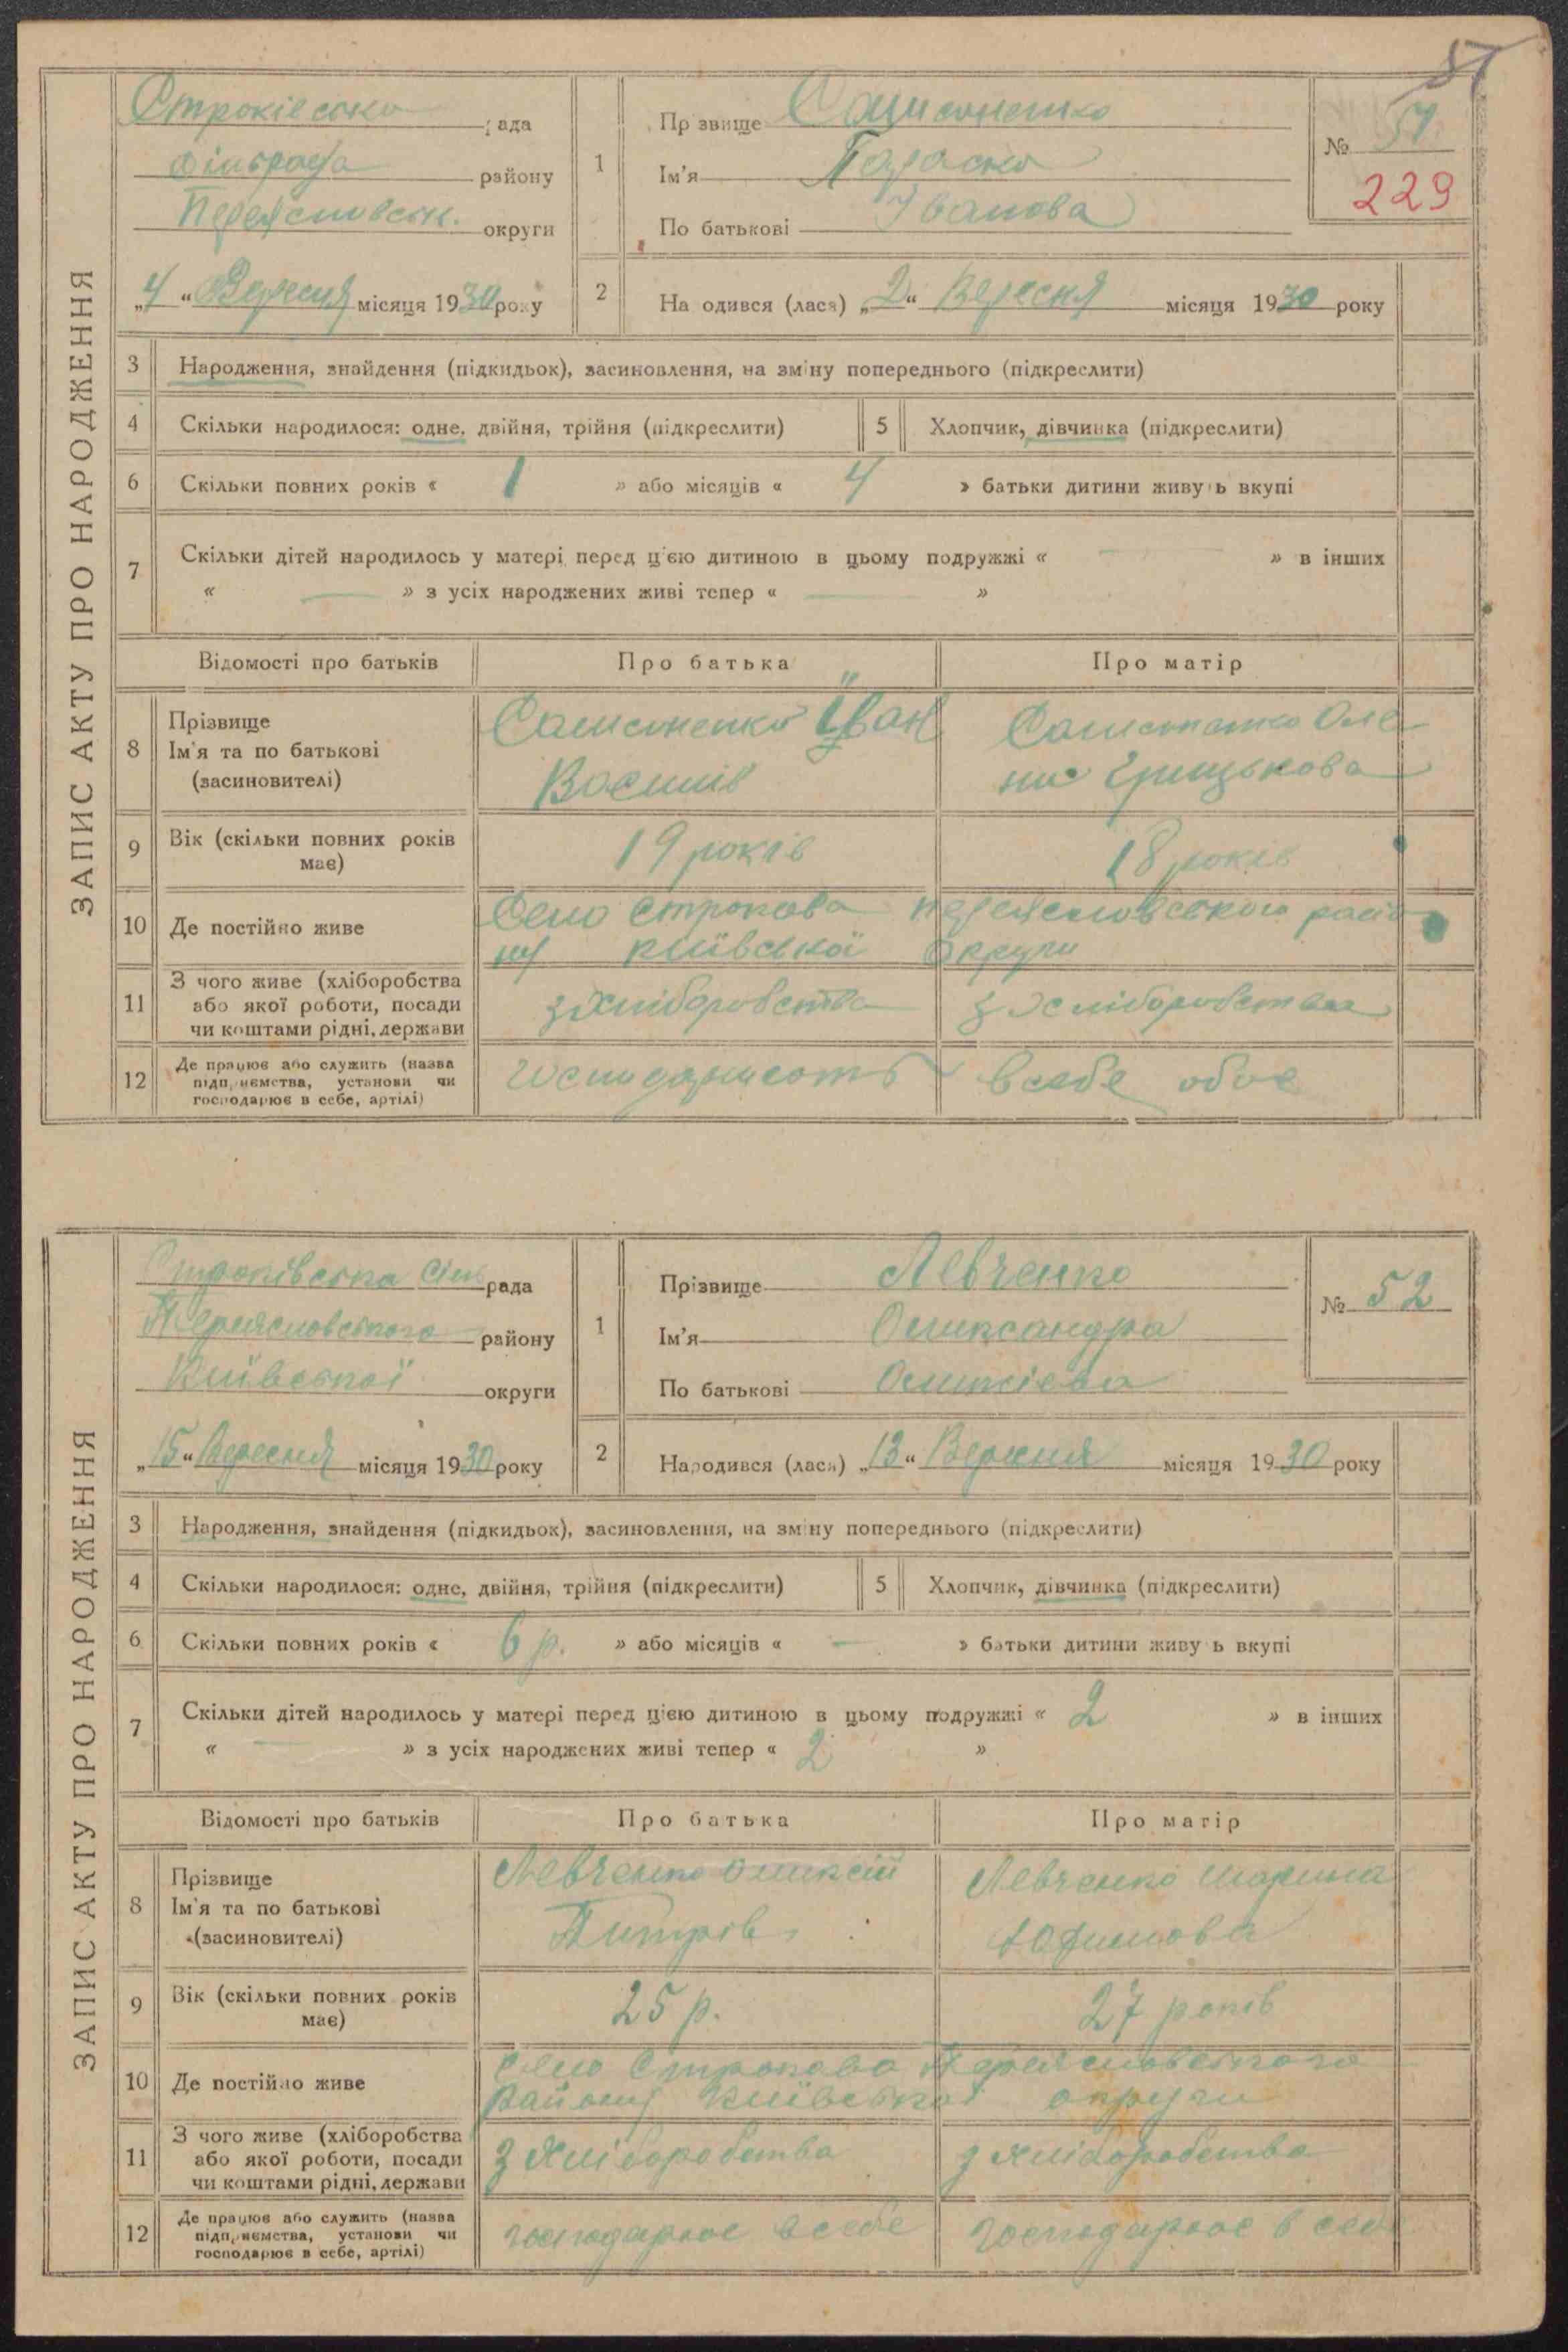 57
ЗАПИС АКТУ ПРО НАРОДЖЕННЯ
Строківська рада
сільрада району
Переяславськ. округи
„4“ Вересня місяця 1930 року
1
Прізвище
Ім'я Параска
По батькові Іванова
№ 51
229
2
Народився (лася) „2“ Вересня місяця 1930 року
3 Народження, знайдення (підкидьок), засиновлення, на зміну попереднього (підкреслити)
4 Скільки народилося: одне, двійня, трійня (підкреслити)
5 Хлопчик, дівчинка (підкреслити)
6 Скільки повних років « 1 » або місяців « 4 » батьки дитини живуть вкупі
7 Скільки дітей народилось у матері перед цією дитиною в цьому подружжі « — » в інших
« — » з усіх народжених живі тепер « — »
Відомості про батьків Про батька Про матір
8 Прізвище
Ім'я та по батькові
(засиновителі)
Іван
Василів
Оле
на Грицькова
9 Вік (скільки повних років
має)
19 років
18 років
10 Де постійно живе
Село Строкова Переяславського райо
ну Київської округи
11 З чого живе (хліборобства
або якої роботи, посади
чи коштами рідні, держави
з хліборобства
з хліборобства
12 Де працює або служить (назва
підприємства, установи чи
господарює в себе, артілі)
в себе обоє
ЗАПИС АКТУ ПРО НАРОДЖЕННЯ
Строківська сіль рада
Переяславського району
Київської округи
„15“ Вересня місяця 1930 року
1
Прізвище Левченко
Ім'я Олександра
По батькові Олексієва
№ 52
2
Народився (лася) „13“ Вересня місяця 1930 року
3 Народження, знайдення (підкидьок), засиновлення, на зміну попереднього (підкреслити)
4 Скільки народилося: одне, двійня, трійня (підкреслити)
5 Хлопчик, дівчинка (підкреслити)
6 Скільки повних років « 6 р. » або місяців « — » батьки дитини живуть вкупі
7 Скільки дітей народилось у матері перед цією дитиною в цьому подружжі « 2 » в інших
« — » з усіх народжених живі тепер « 2 »
Відомості про батьків Про батька Про матір
8 Прізвище
Ім'я та по батькові
(засиновителі)
Левченко Олексій
Питрів
Левченко Марина
Юхимова
9 Вік (скільки повних років
має)
25 р.
27 років
10 Де постійно живе
Село Строкова Переяславського
Району Київської округи
11 З чого живе (хліборобства
або якої роботи, посади
чи коштами рідні, держави
З хліборобства
З хліборобства
12 Де працює або служить (назва
підприємства, установи чи
господарює в себе, артілі)
господарює в себе
господарює в себе